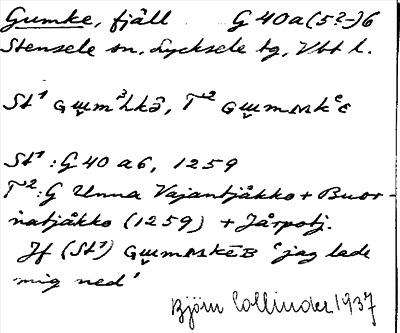 Gumke, fjäll G 40 a (5?-)6
Stensele sn, Lycksele tg, Vbt l.
St¹ Gu̯m³hkə̂, T² Gu̯mmkᵉe
St¹ : G 40 a6, 1259
T² : G Unna Vajantjåkko + Buor-
natjåkko (1259) + Jårpotj.
Jf (St¹) Gu̯mmkēB 'jag lade
mig ned'
Björn Collinder 1937